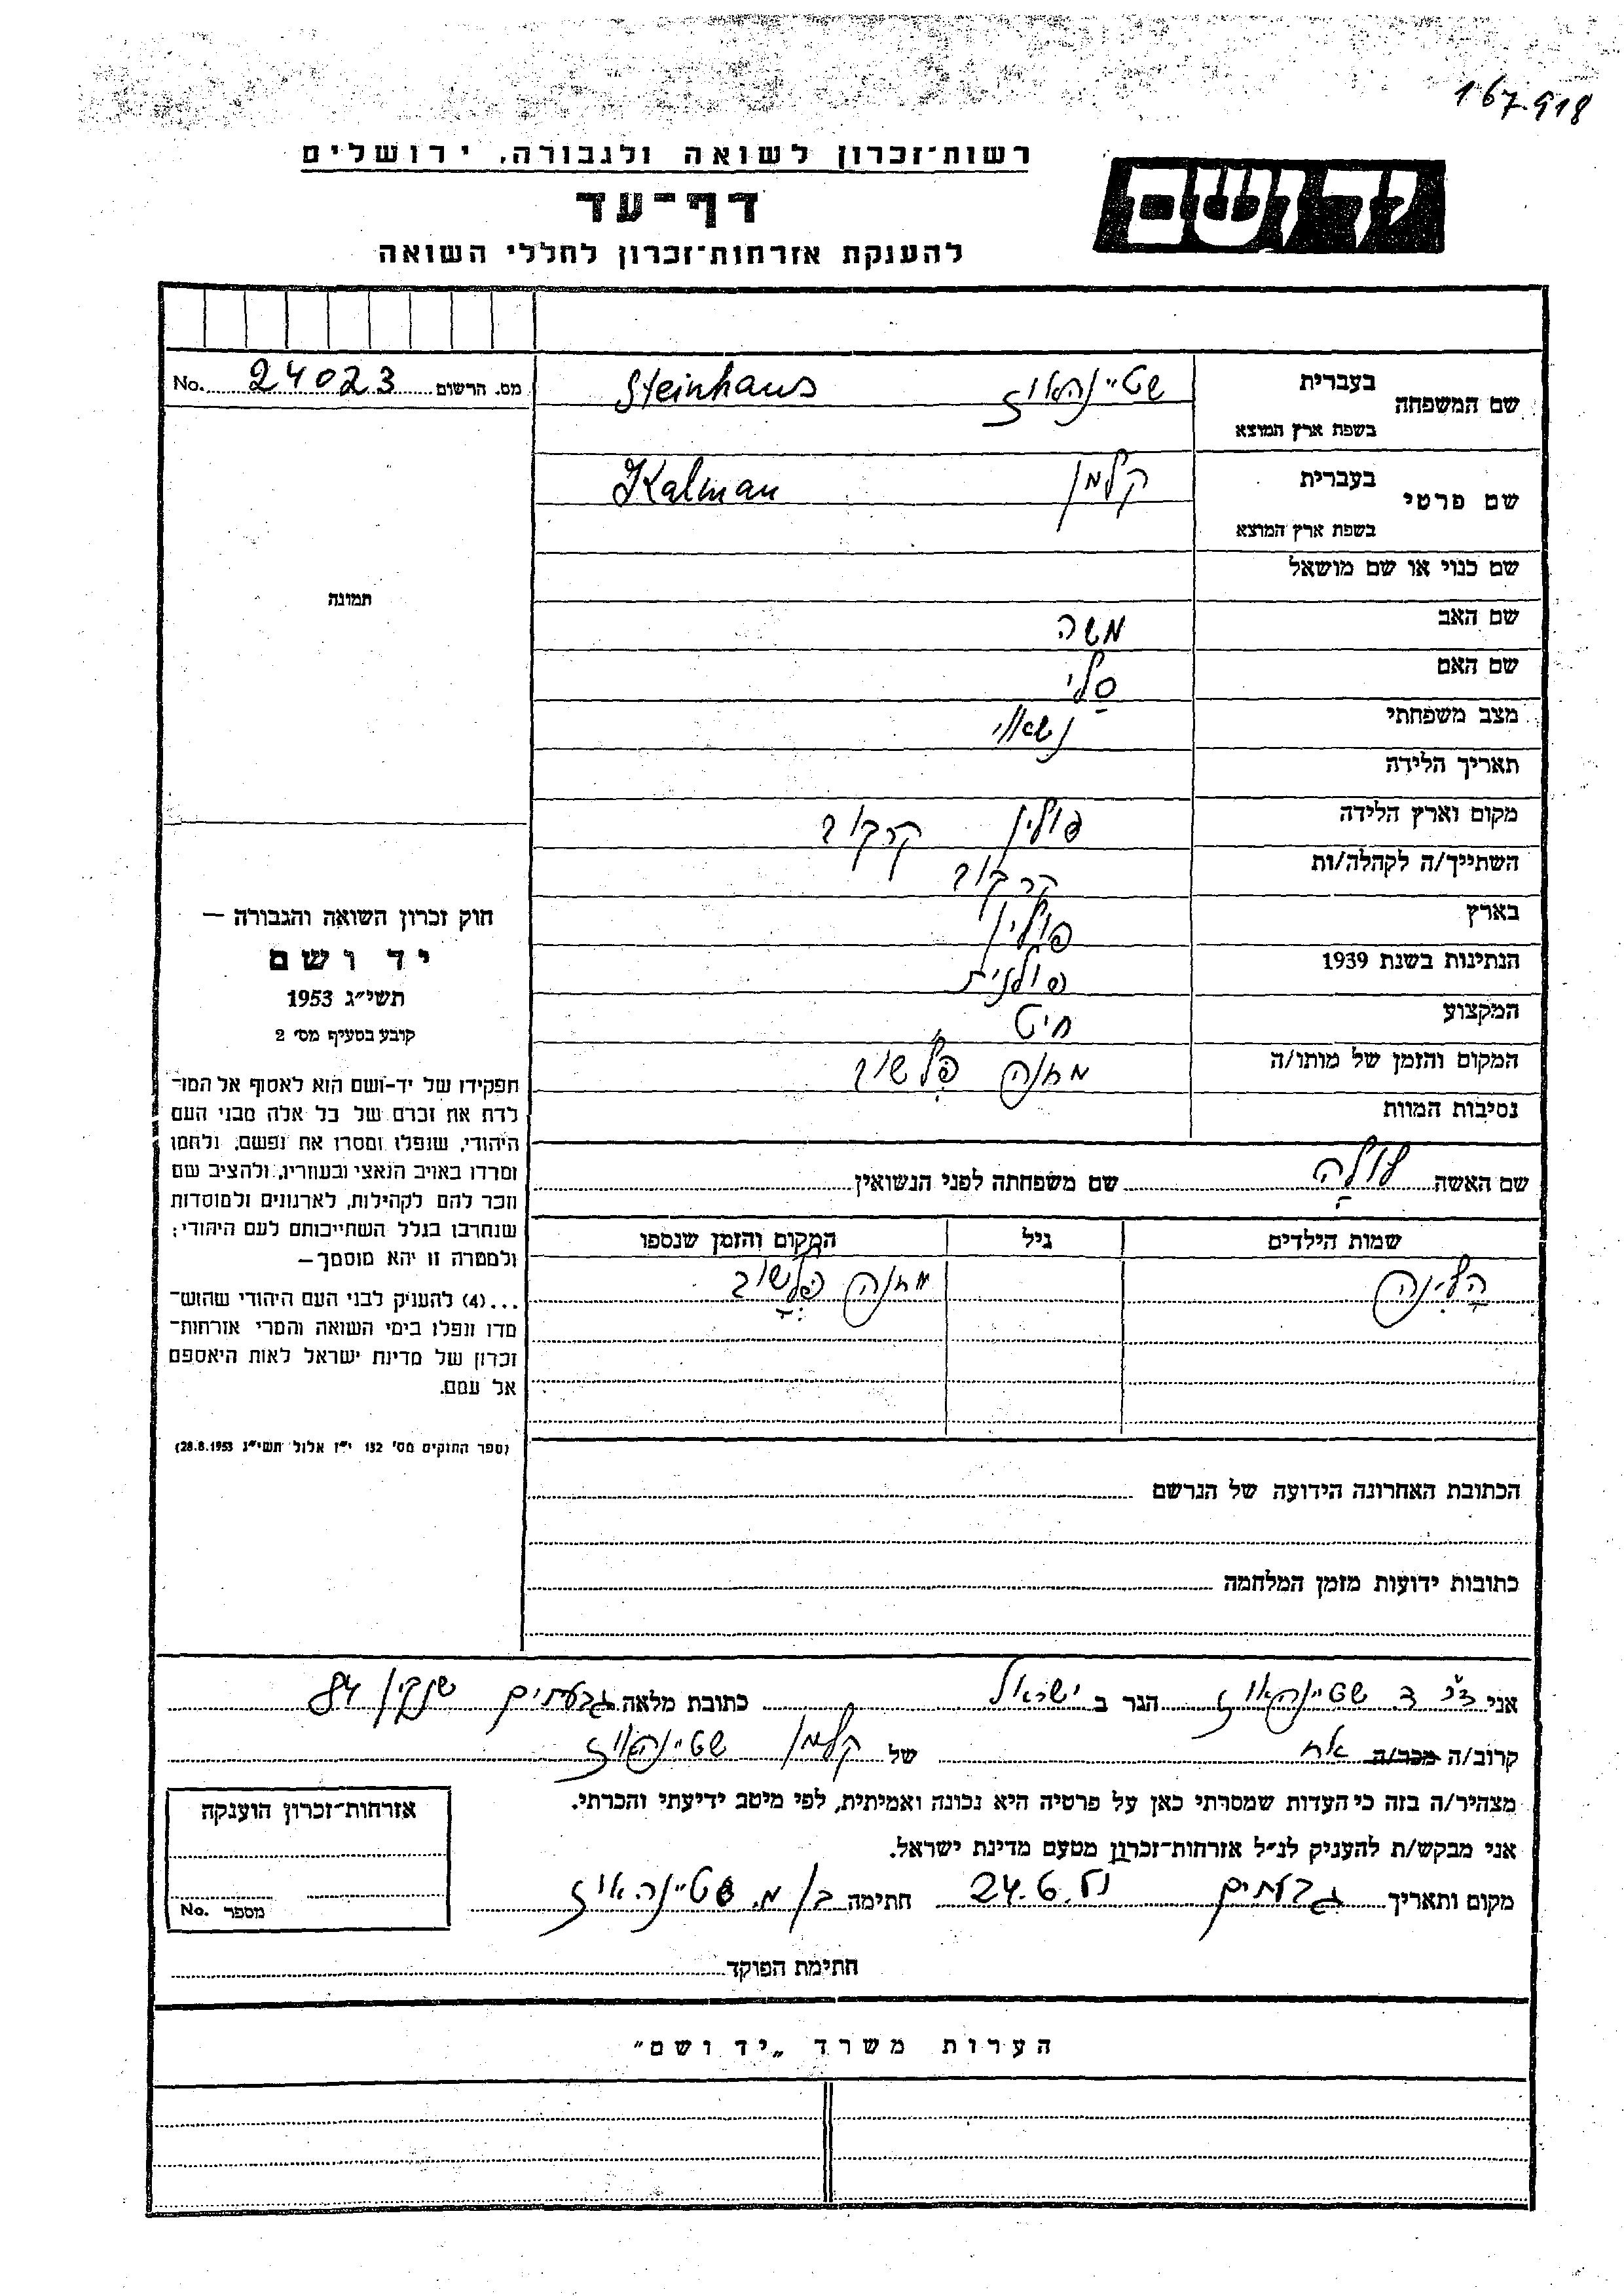 167.918
רשות־זכרון לשואה ולגבורה, ירושלים
דף־עד
להענקת אזרחות־זכרון לחללי השואה
יד ושם
No. 24023 מס. הרשום
שם המשפחה
בעברית שטיינהאוז Steinhaus
בשפת ארץ המוצא
שם פרטי
בעברית קלמן Kalman
בשפת ארץ המוצא
שם כנוי או שם מושאל
תמונה
שם האב משה
שם האם סלי
מצב משפחתי נשאוי
תאריך הלידה
מקום וארץ הלידה פולין קרקוב
השתייך/ה לקהלה/ות קרקוב
בארץ פולין
הנתינות בשנת 1939 פולנית
המקצוע חיט
המקום והזמן של מותו/ה מחנה פלשוב
נסיבות המוות
חוק זכרון השואה והגבורה —
יד ושם
תשי״ג 1953
קובע בסעיף מס׳ 2
תפקידו של יד-ושם הוא לאסוף אל המו־
לדת את זכרם של כל אלה מבני העם
היהודי, שנפלו ומסרו את נפשם, נלחמו
ומרדו באויב הנאצי ובעוזריו, ולהציב שם
וזכר להם לקהילות, לארגונים ולמוסדות
שנחרבו בגלל השתייכותם לעם היהודי;
ולמטרה זו יהא מוסמך—
...(4) להעניק לבני העם היהודי שהוש־
מדו ונפלו בימי השואה והמרי אזרחות־
זכרון של מדינת ישראל לאות היאספם
אל עמם.
(ספר החוקים מס׳ 132 י״ז אלול תשי״ג 28.8.1953)
שם האשה שם משפחתה לפני הנשואין
שמות הילדים גיל המקום והזמן שנספו
הלינה מחנה פלשוב
הכתובת האחרונה הידועה של הנרשם
כתובות ידועות מזמן המלחמה
אני שטיינהאוז הגר ב ישראל כתובת מלאה גבעתים שנקין 84
קרוב/ה מכר/ה אח של קלמן שטיינהאוז
מצהיר/ה בזה כי העדות שמסרתי כאן על פרטיה היא נכונה ואמיתית, לפי מיטב ידיעתי והכרתי.
אני מבקש/ת להעניק לנ״ל אזרחות־זכרון מטעם מדינת ישראל.
מקום ותאריך גבעתים 24.6 חתימה שטיינהאוז
חתימת הפוקד
אזרחות־זכרון הוענקה
No. מספר
הערות משרד „יד ושם״